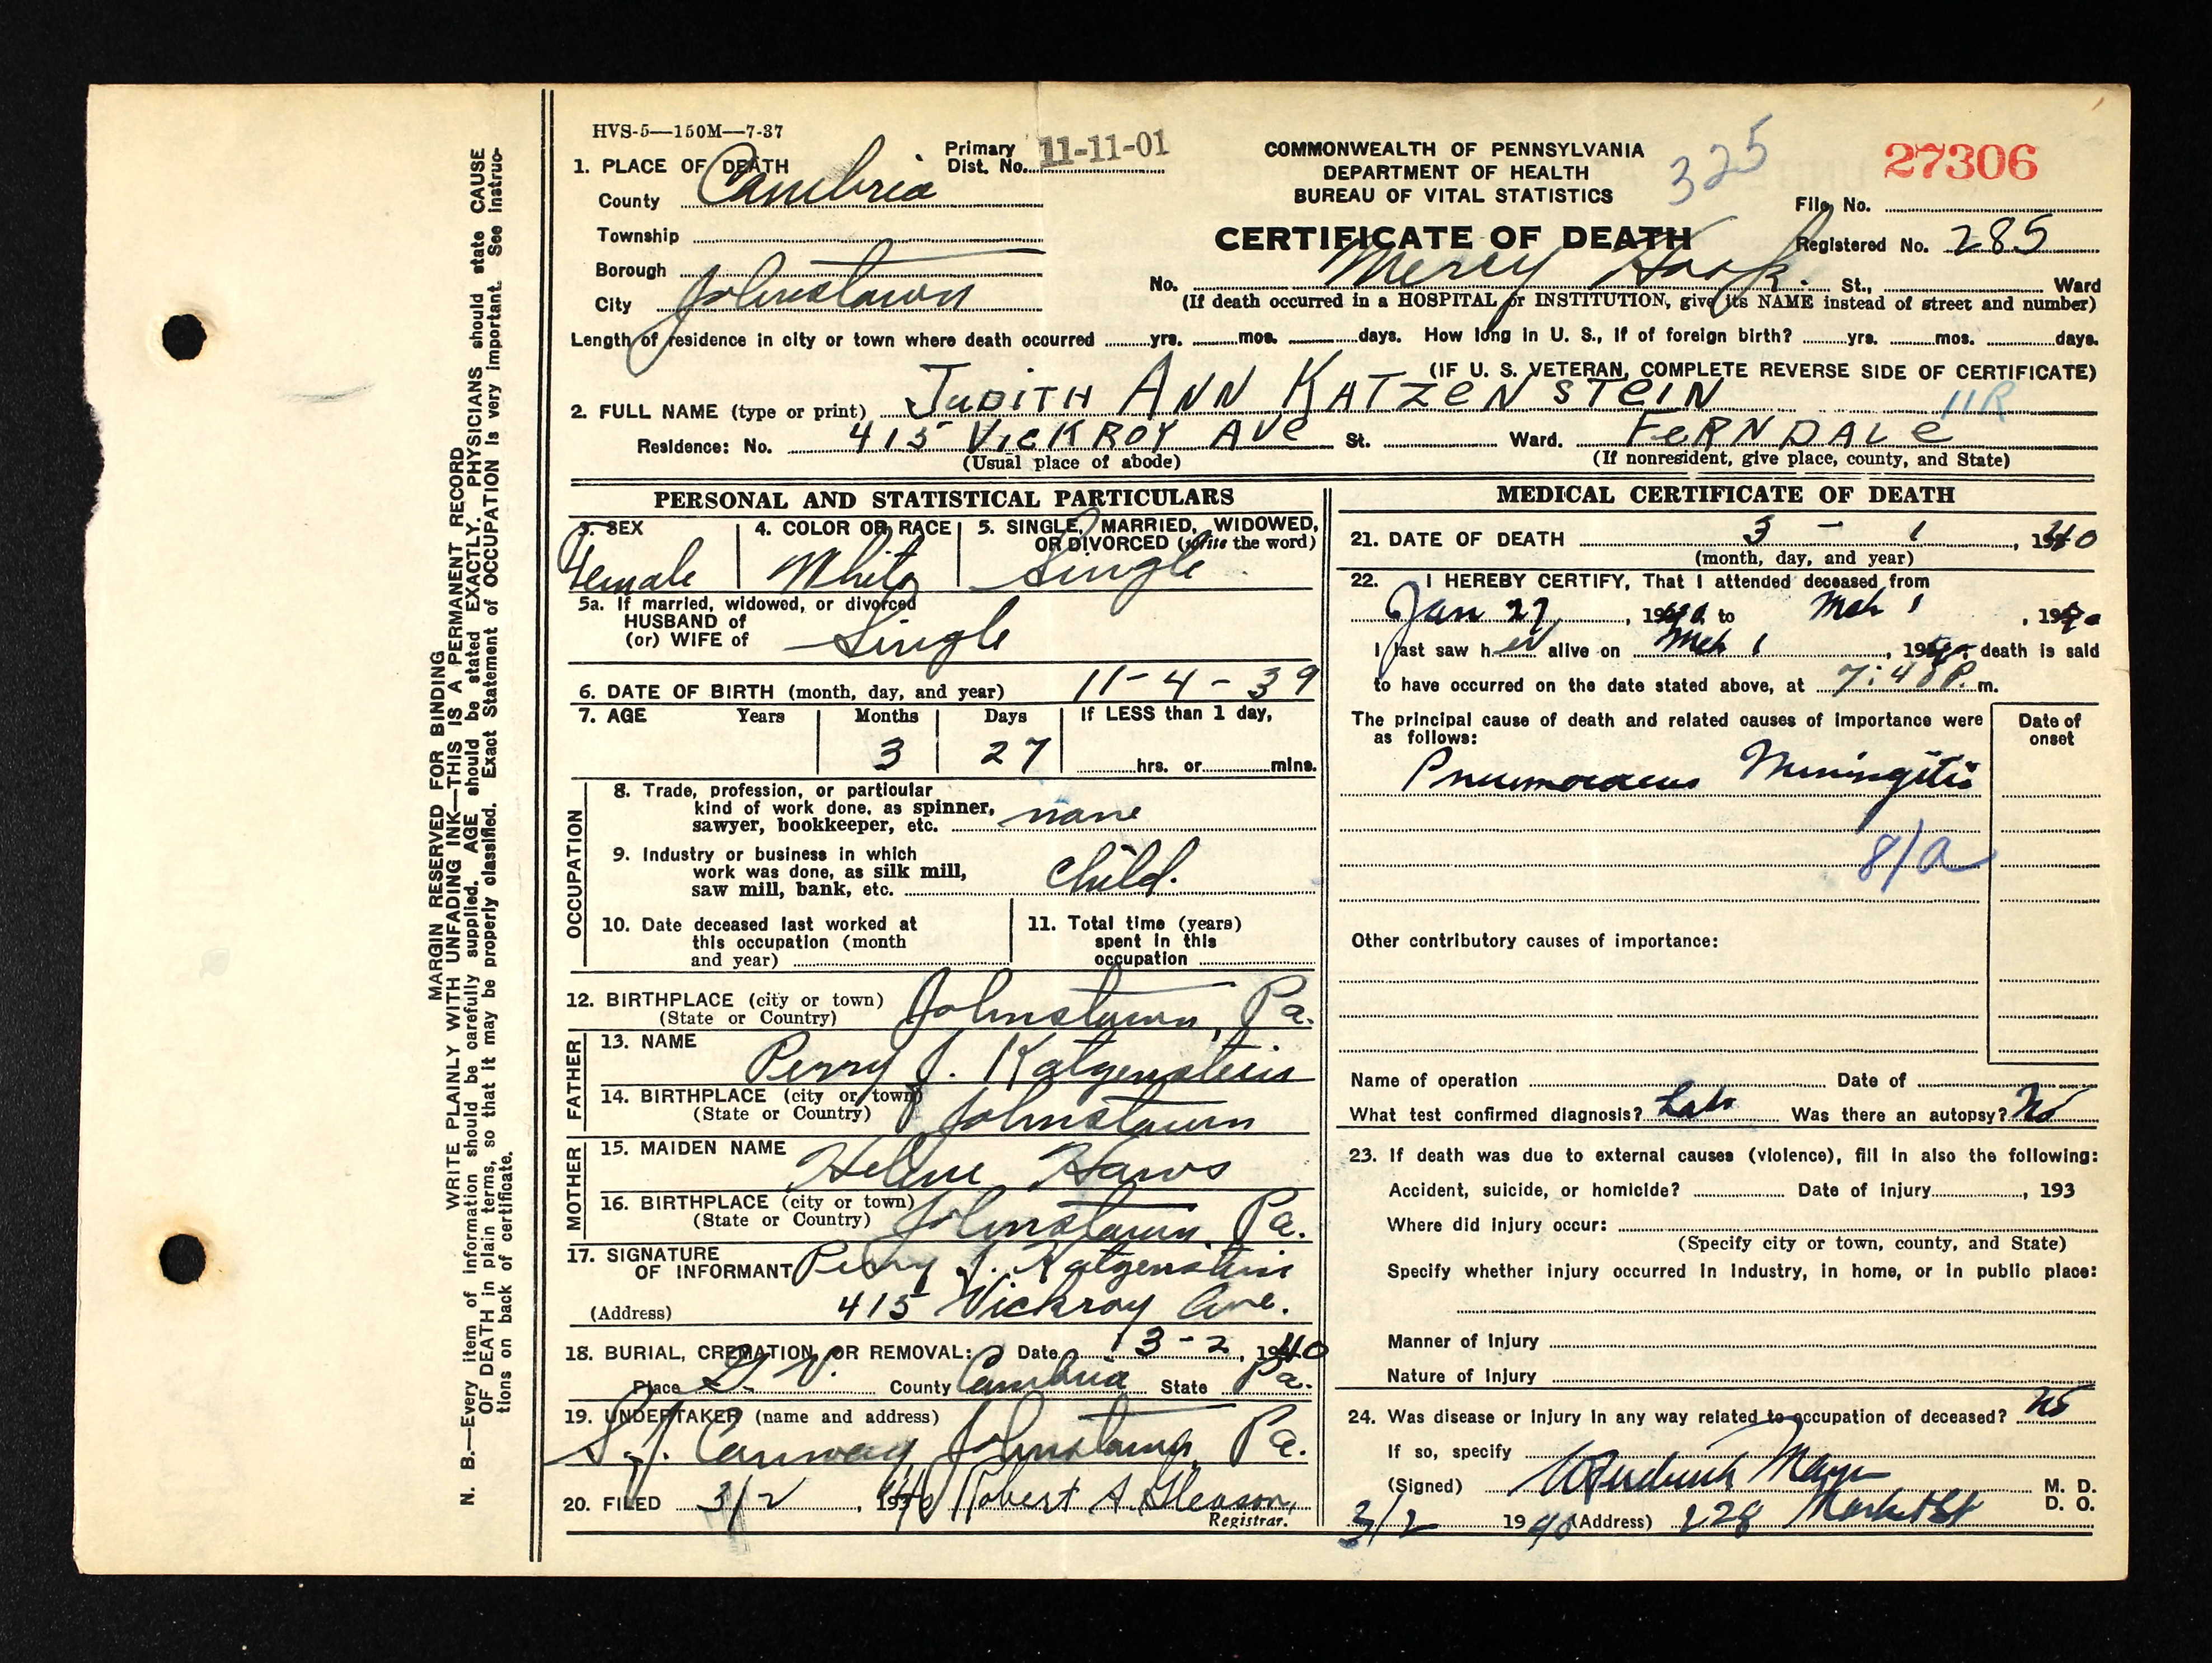 HVS-5—150M—7-37
Primary Dist. No. 11-11-01
COMMONWEALTH OF PENNSYLVANIA
DEPARTMENT OF HEALTH
BUREAU OF VITAL STATISTICS
325
27306
File No.
CERTIFICATE OF DEATH
Registered No. 285
1. PLACE OF DEATH
County Cambria
Township
Borough
City Johnstown
No. Mercy Hosp. St., Ward
(If death occurred in a HOSPITAL or INSTITUTION, give its NAME instead of street and number)
Length of residence in city or town where death occurred yrs. mos. days. How long in U. S., if of foreign birth? yrs. mos. days.
(IF U. S. VETERAN, COMPLETE REVERSE SIDE OF CERTIFICATE)
2. FULL NAME (type or print) JUDITH ANN KATZENSTEIN 11R
Residence: No. 415 VICKROY AVE St. Ward. FERNDALE
(Usual place of abode) (If nonresident, give place, county, and State)
PERSONAL AND STATISTICAL PARTICULARS
3. SEX 4. COLOR OR RACE 5. SINGLE, MARRIED, WIDOWED, OR DIVORCED (write the word)
Female White Single
5a. If married, widowed, or divorced
HUSBAND of
(or) WIFE of Single
6. DATE OF BIRTH (month, day, and year) 11-4-39
7. AGE Years Months Days If LESS than 1 day,
3 27 hrs. or mins.
OCCUPATION
8. Trade, profession, or particular
kind of work done, as spinner,
sawyer, bookkeeper, etc. none
9. Industry or business in which
work was done, as silk mill,
saw mill, bank, etc. child.
10. Date deceased last worked at
this occupation (month
and year)
11. Total time (years)
spent in this
occupation
12. BIRTHPLACE (city or town) Johnstown, Pa.
(State or Country)
FATHER
13. NAME Perry J. Katzenstein
14. BIRTHPLACE (city or town) Johnstown
(State or Country)
MOTHER
15. MAIDEN NAME Helene Haws
16. BIRTHPLACE (city or town) Johnstown, Pa.
(State or Country)
17. SIGNATURE
OF INFORMANT Perry J. Katzenstein
(Address) 415 Vickroy Ave.
18. BURIAL, CREMATION, OR REMOVAL: Date 3-2, 1940
Place G. V. County Cambria State Pa.
19. UNDERTAKER (name and address)
S. J. Conway Johnstown, Pa.
20. FILED 3/2, 1940 Robert A. Gleason,
Registrar.
MEDICAL CERTIFICATE OF DEATH
21. DATE OF DEATH 3 - 1, 1940
(month, day, and year)
22. I HEREBY CERTIFY, That I attended deceased from
Jan 27, 1940 to Mch 1, 1940
I last saw her alive on Mch 1, 1940, death is said
to have occurred on the date stated above, at 7:48 P. m.
The principal cause of death and related causes of importance were
as follows:
Date of
onset
Pneumococcus Meningitis
81a
Other contributory causes of importance:
Name of operation Date of
What test confirmed diagnosis? Lab Was there an autopsy? No
23. If death was due to external causes (violence), fill in also the following:
Accident, suicide, or homicide? Date of injury, 193
Where did injury occur:
(Specify city or town, county, and State)
Specify whether injury occurred in industry, in home, or in public place:
Manner of Injury
Nature of Injury
24. Was disease or injury in any way related to occupation of deceased? No
If so, specify
(Signed) M. D.
D. O.
3/2 1940 (Address) 228 Market St
MARGIN RESERVED FOR BINDING
WRITE PLAINLY WITH UNFADING INK—THIS IS A PERMANENT RECORD
N. B.—Every item of information should be carefully supplied. AGE should be stated EXACTLY. PHYSICIANS should state CAUSE
OF DEATH in plain terms, so that it may be properly classified. Exact Statement of OCCUPATION is very important. See instruc-
tions on back of certificate.